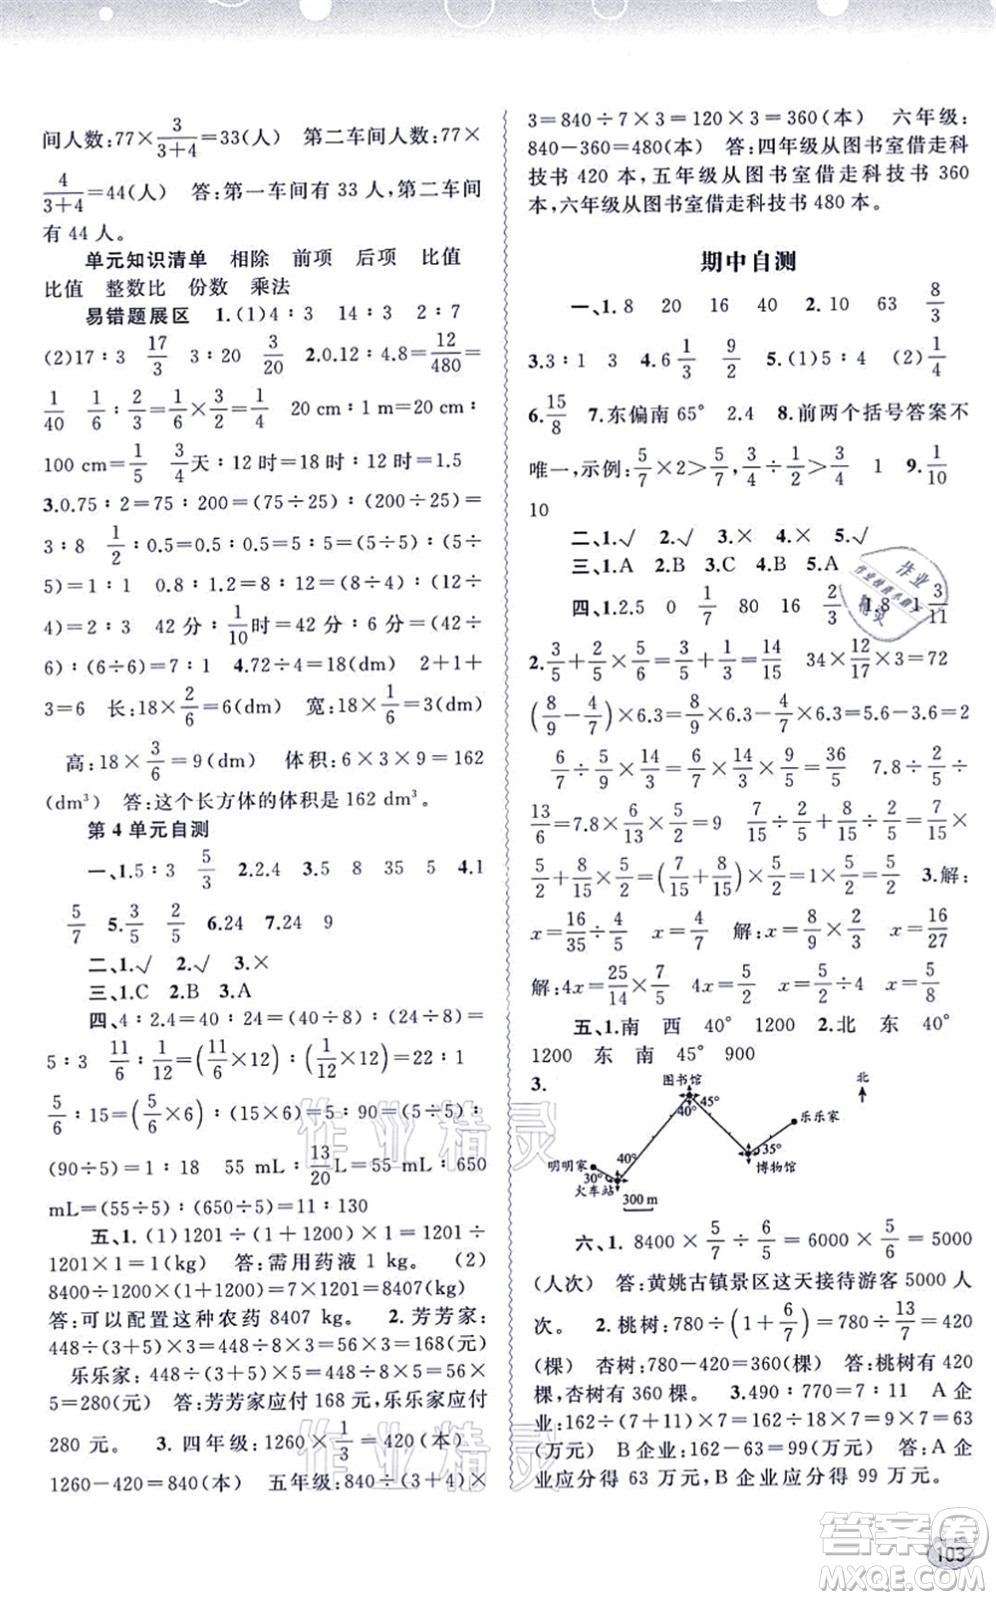 间人数:77×3/(3+4)=33(人) 第二车间人数:77×
4/(3+4)=44(人) 答:第一车间有 33 人,第二车间
有 44 人。
单元知识清单 相除 前项 后项 比值
比值 整数比 份数 乘法
易错题展区 1.(1)4∶3 14∶3 2∶7
(2)17∶3 17/3 3∶20 3/20 2.0.12∶4.8=12/480
1/40 1/6∶2/3=1/6×3/2=1/4 20 cm∶1 m=20 cm∶
100 cm=1/5 3/4天∶12时=18时∶12时=1.5
3.0.75∶2=75∶200=(75÷25)∶(200÷25)=
3∶8 1/2∶0.5=0.5∶0.5=5∶5=(5÷5)∶(5÷
5)=1∶1 0.8∶1.2=8∶12=(8÷4)∶(12÷
4)=2∶3 42分∶1/10时=42分∶6分=(42÷
6)∶(6÷6)=7∶1 4.72÷4=18(dm) 2+1+
3=6 长:18×2/6=6(dm) 宽:18×1/6=3(dm)
高:18×3/6=9(dm) 体积:6×3×9=162
(dm³) 答:这个长方体的体积是 162 dm³。
第 4 单元自测
一、1.5∶3 5/3 2.2.4 3.5 8 35 5 4.1
5/7 5.3/5 2/5 6.24 7.24 9
二、1.√ 2.√ 3.×
三、1.C 2.B 3.A
四、4∶2.4=40∶24=(40÷8)∶(24÷8)=
5∶3 11/6∶1/12=(11/6×12)∶(1/12×12)=22∶1
5/6∶15=(5/6×6)∶(15×6)=5∶90=(5÷5)∶
(90÷5)=1∶18 55 mL∶13/20L=55 mL∶650
mL=(55÷5)∶(650÷5)=11∶130
五、1.(1)1201÷(1+1200)×1=1201÷
1201×1=1(kg) 答:需用药液 1 kg。 (2)
8400÷1200×(1+1200)=7×1201=8407(kg)
答:可以配置这种农药 8407 kg。 2.芳芳家:
448÷(3+5)×3=448÷8×3=56×3=168(元)
乐乐家:448÷(3+5)×5=448÷8×5=56×
5=280(元) 答:芳芳家应付 168 元,乐乐家应付
280 元。 3.四年级:1260×1/3=420(本)
1260-420=840(本) 五年级:840÷(3+4)×
3=840÷7×3=120×3=360(本) 六年级:
840-360=480(本) 答:四年级从图书室借走科
技书 420 本,五年级从图书室借走科技书 360
本,六年级从图书室借走科技书 480 本。
期中自测
一、1.8 20 16 40 2.10 63 8/3
3.3∶1 3 4.6 1/3 9/2 5.(1)5∶4 (2)1/4
6.15/8 7.东偏南 65° 2.4 8.前两个括号答案不
唯一,示例:5/7×2>5/7,3/4÷1/2>3/4 1 9.1/10
10
二、1.√ 2.√ 3.× 4.× 5.√
三、1.A 2.B 3.C 4.B 5.A
四、1.2.5 0 1/7 80 16 2/3 1.8 1 3/11
2.3/5+2/5÷6/5=3/5+1/3=14/15 34×12/17×3=72
(8/9-4/7)×6.3=8/9×6.3-4/7×6.3=5.6-3.6=2
6/7÷5/7×14/3=6/7×7/5×14/3=6/5×14/3=28/5 9/10÷3/8÷5/2=9/10×8/3×2/5
7.8÷5/2÷
13/6=7.8×6/13×5/2=9 7/15÷2/5+8/15×
5/2=7/15×5/2+8/15×5/2=(7/15+8/15)×5/2=1×5/2=5/2 3.解:
x=16/35÷4/5 x=4/7 解:x=8/9×2/3 x=16/27
解:4x=25/14×7/5 4x=5/2 x=5/2÷4 x=5/8
五、1.南 西 40° 1200 2.北 东 40°
1200 东 南 45° 900
3.
图书馆 北
45°
40°
乐乐家
40°
35°
明明家 博物馆
30°
火车站 300 m
六、1. 8400×5/7÷6/5=6000×5/6=5000
(人次) 答:黄姚古镇景区这天接待游客 5000 人
次。 2.桃树:780÷(1+6/7)=780÷13/7=420
(棵) 杏树:780-420=360(棵) 答:桃树有 420
棵,杏树有 360 棵。 3.490∶770=7∶11 A 企
业:162÷(7+11)×7=162÷18×7=9×7=63
(万元) B 企业:162-63=99(万元) 答:A 企
业应分得 63 万元,B 企业应分得 99 万元。
103
作业精灵
作业精灵
答案圈
MXQE.COM